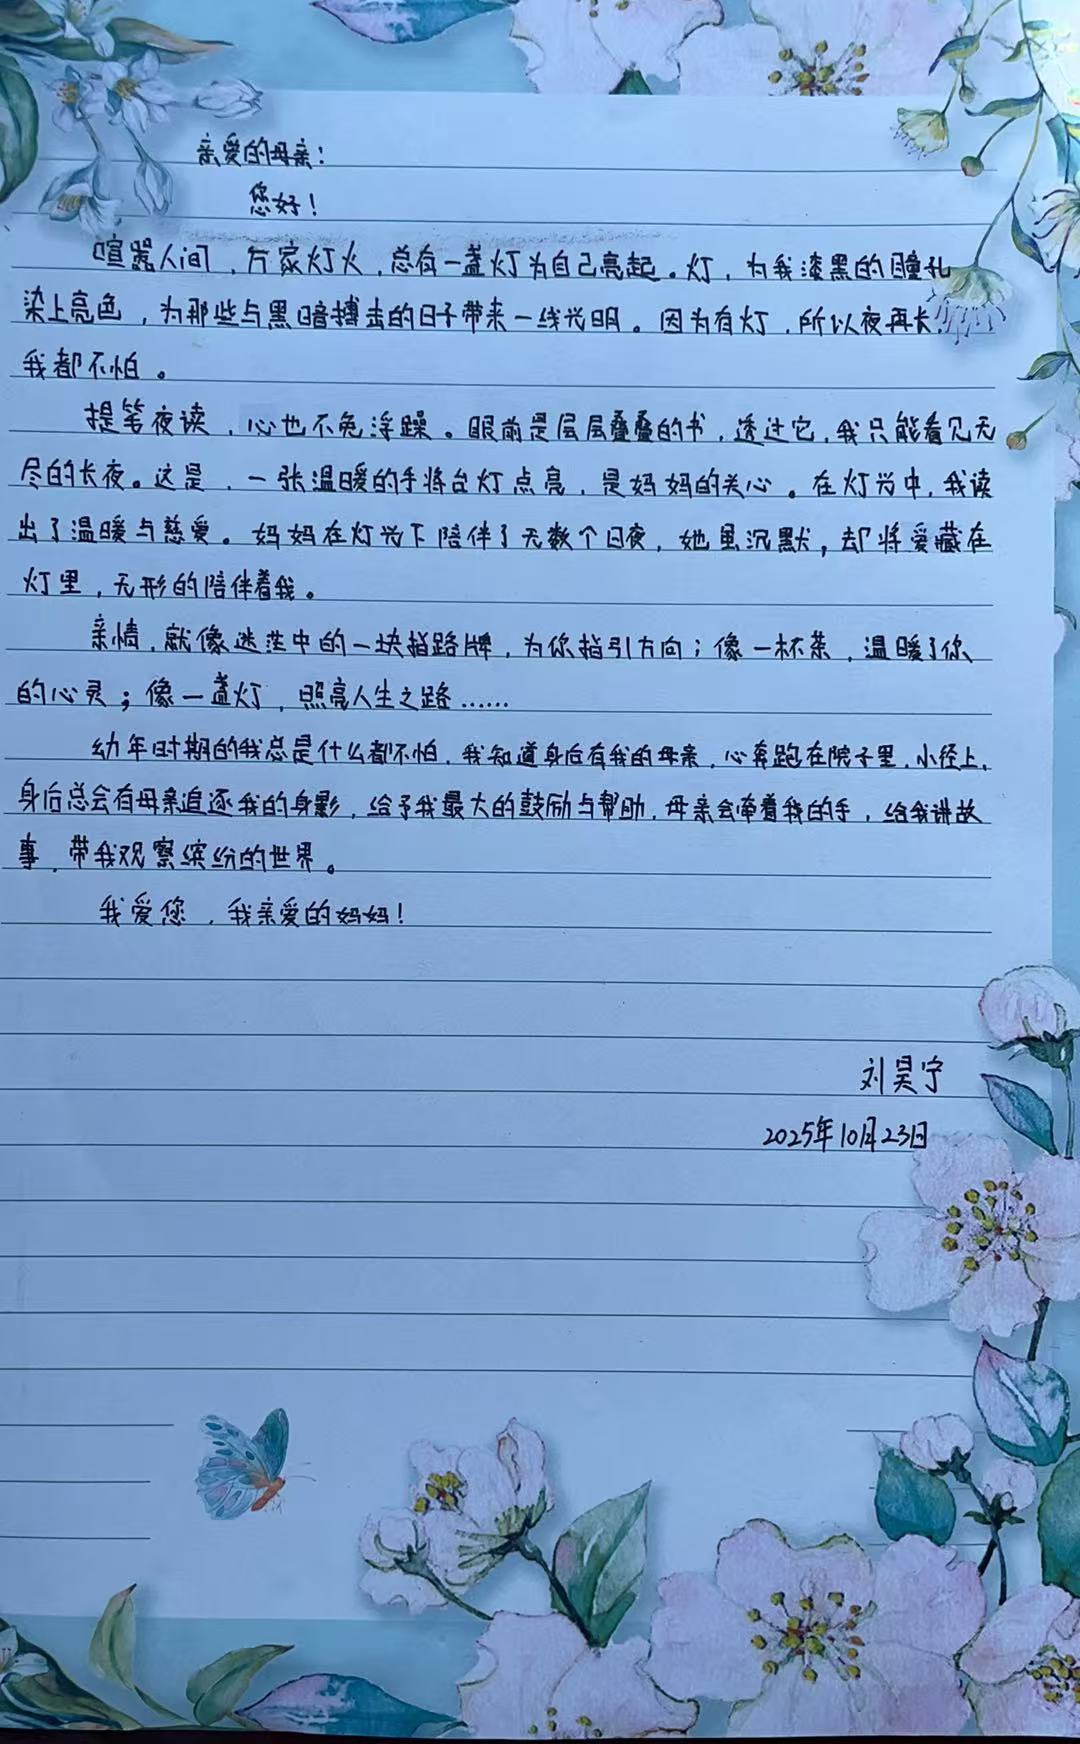 亲爱的母亲：
您好！
喧嚣人间，万家灯火，总有一盏灯为自己亮起。灯，为我漆黑的瞳孔
染上亮色，为那些与黑暗搏击的日子带来一线光明。因为有灯，所以夜再长，
我都不怕。
提笔夜读，心也不免浮躁。眼前是层层叠叠的书，透过它，我只能看见无
尽的长夜。这是，一张温暖的手将台灯点亮，是妈妈的关心。在灯光中，我读
出了温暖与慈爱。妈妈在灯光下陪伴了无数个日夜，她虽沉默，却将爱藏在
灯里，无形的陪伴着我。
亲情，就像迷茫中的一块指路牌，为你指引方向；像一杯茶，温暖了你
的心灵；像一盏灯，照亮人生之路……
幼年时期的我总是什么都不怕，我知道身后有我的母亲，心奔跑在院子里，小径上，
身后总会有母亲追逐我的身影，给予我最大的鼓励与帮助，母亲会牵着我的手，给我讲故
事，带我观察缤纷的世界。
我爱您，我亲爱的妈妈！
刘昊宁
2025年10月23日